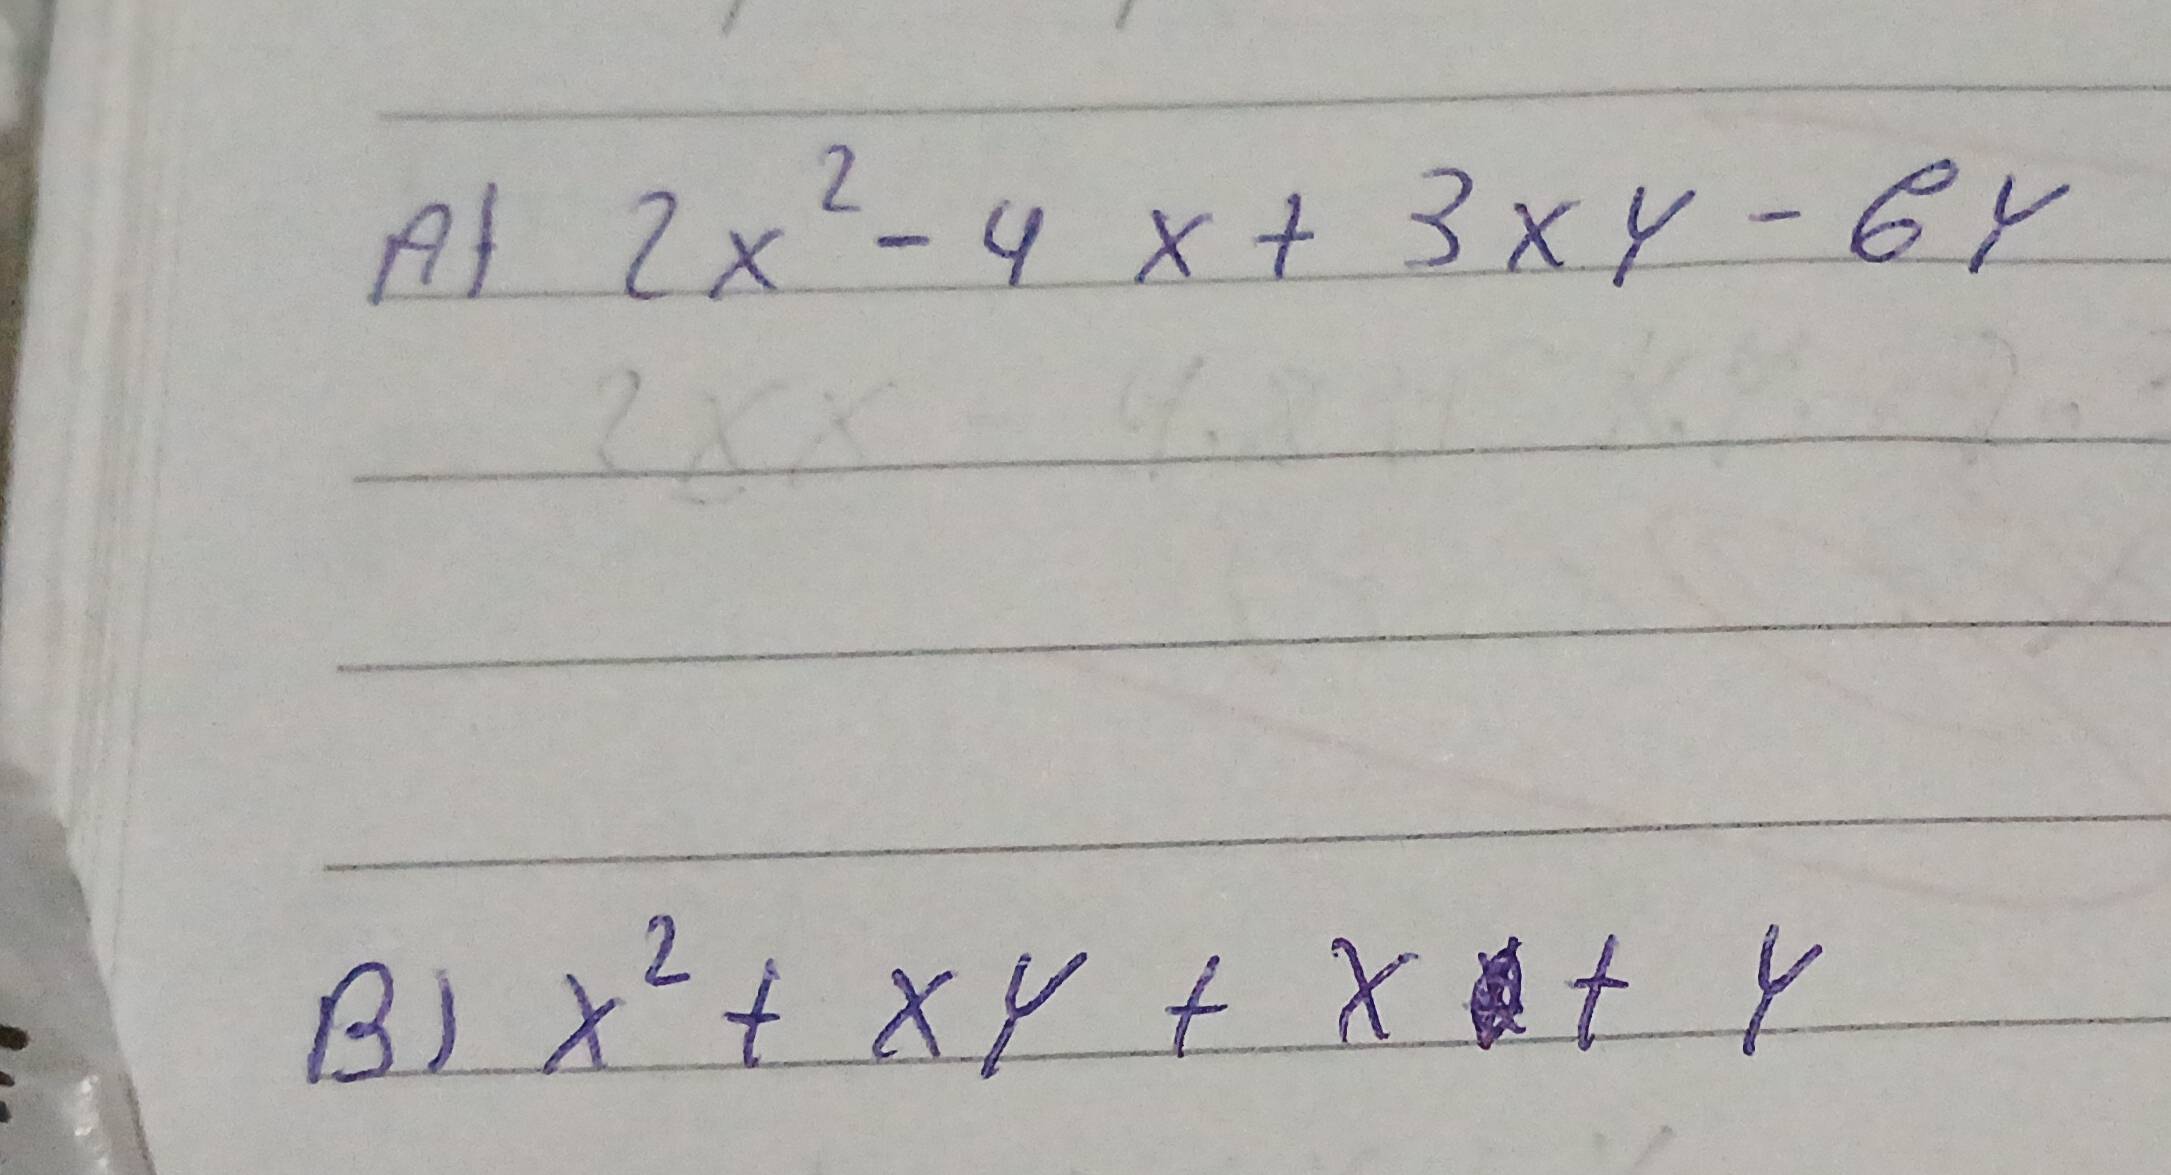 A) 2x² - 4x + 3xy - 6y
2xx - 4.
B) x² + xy + x + y